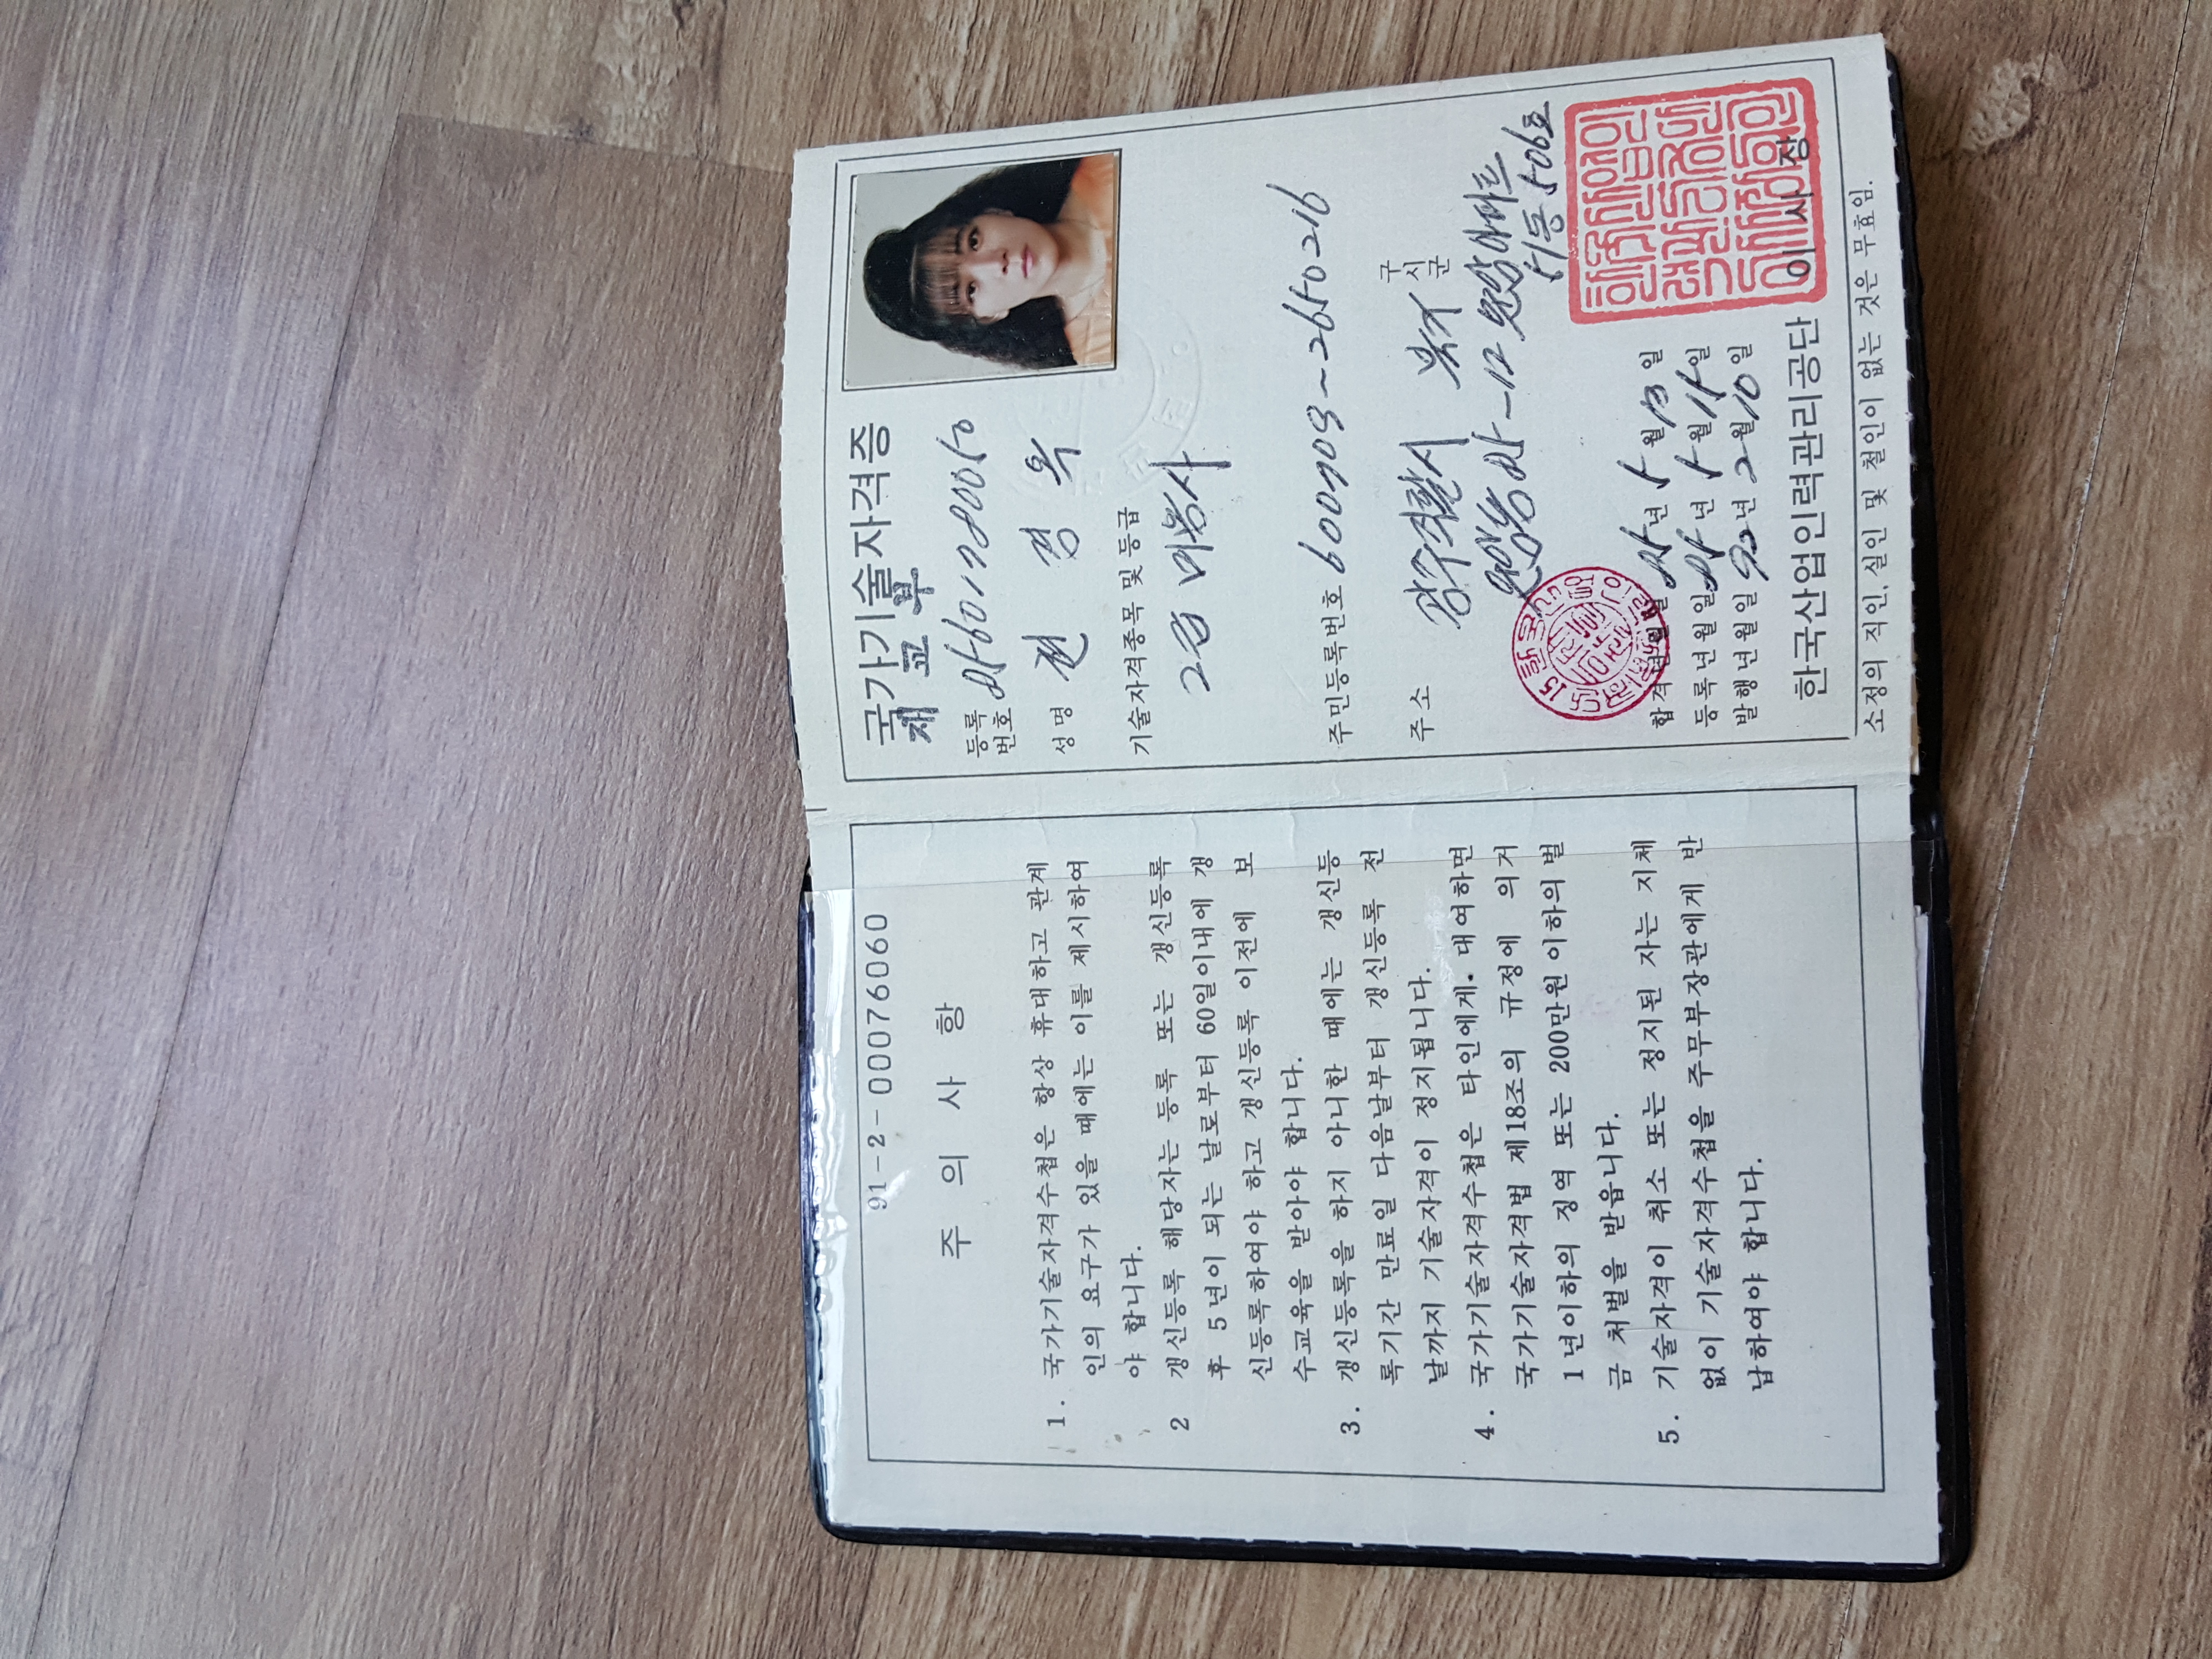 91-2-00076060
주 의 사 항
1. 국가기술자격수첩은 항상 휴대하고 관계
인의 요구가 있을 때에는 이를 제시하여
야 합니다.
2 갱신등록 해당자는 등록 또는 갱신등록
후 5년이 되는 날로부터 60일이내에 갱
신등록하여야 하고 갱신등록 이전에 보
수교육을 받아야 합니다.
3. 갱신등록을 하지 아니한 때에는 갱신등
록기간 만료일 다음날부터 갱신등록 전
날까지 기술자격이 정지됩니다.
4. 국가기술자격수첩은 타인에게. 대여하면
국가기술자격법 제18조의 규정에 의거
1년이하의 징역 또는 200만원 이하의 벌
금 처벌을 받읍니다.
5. 기술자격이 취소 또는 정지된 자는 지체
없이 기술자격수첩을 주무부장관에게 반
납하여야 합니다.
국가기술자격증
재 교 부
등록
번호
성명 전 경 옥
기술자격종목 및 등급
2급 미용사
주민등록번호 600709-2650216
주소 광주직할시 북 구
시
군
년월일 년 월 13일
등록년월일 년 월 일
발행년월일 92년 2월 10일
한국산업인력관리공단 이 사 장
소정의 직인, 실인 및 철인이 없는 것은 무효임.